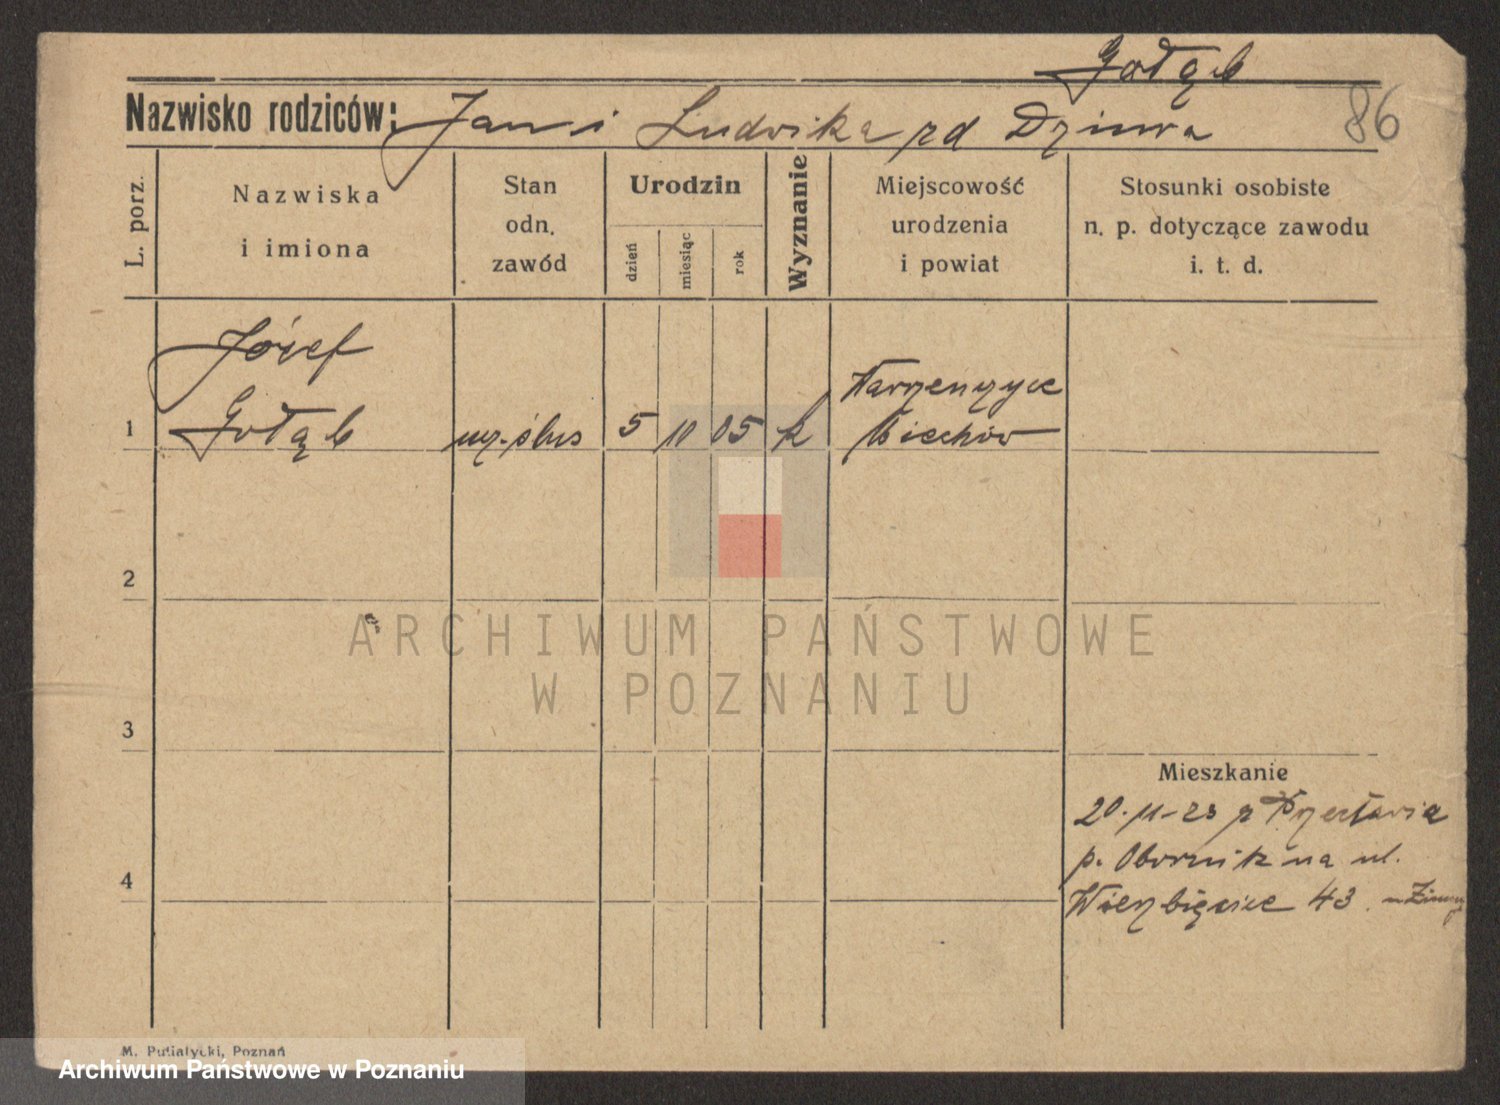 Gołąb
Nazwisko rodziców: Jan i Ludwika zd Dziura
86
L. porz.
Nazwiska
i imiona
Stan
odn.
zawód
Urodzin
dzień
miesiąc
rok
Wyznanie
Miejscowość
urodzenia
i powiat
Stosunki osobiste
n. p. dotyczące zawodu
i. t. d.
Józef
1 Gołąb ucz. ślus 5 10 05 k
Miechów
2
ARCHIWUM PAŃSTWOWE
W POZNANIU
3
Mieszkanie
20.11-23 z
p. Obornik na ul.
4
Wierzbięcice 43
M. Putiatycki, Poznań
Archiwum Państwowe w Poznaniu